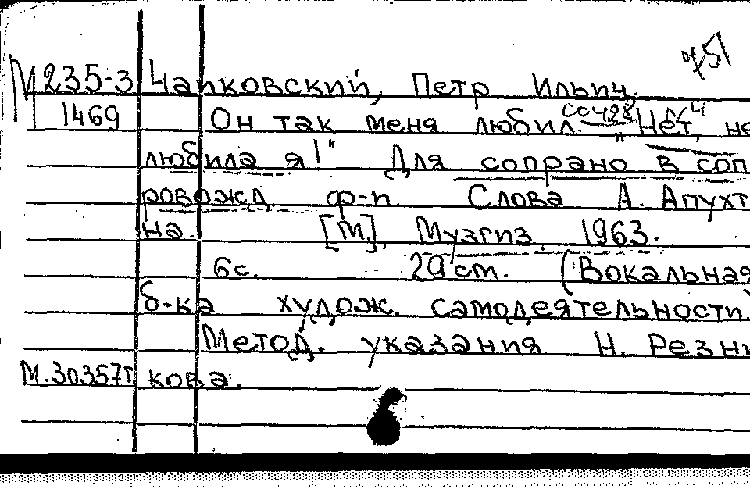 М235-3 Чайковский, Петр Ильич.
1469 Он так меня любил. "Нет, не
любила я!" Для сопрано в соп
ровожд. ф-п Слова А. Апухт
на. [М], Музгиз, 1963.
6с. 29 cm. (Вокальная
б-ка худож. самодеятельности)
Метод. указания Н. Резни
М.30357т кова.